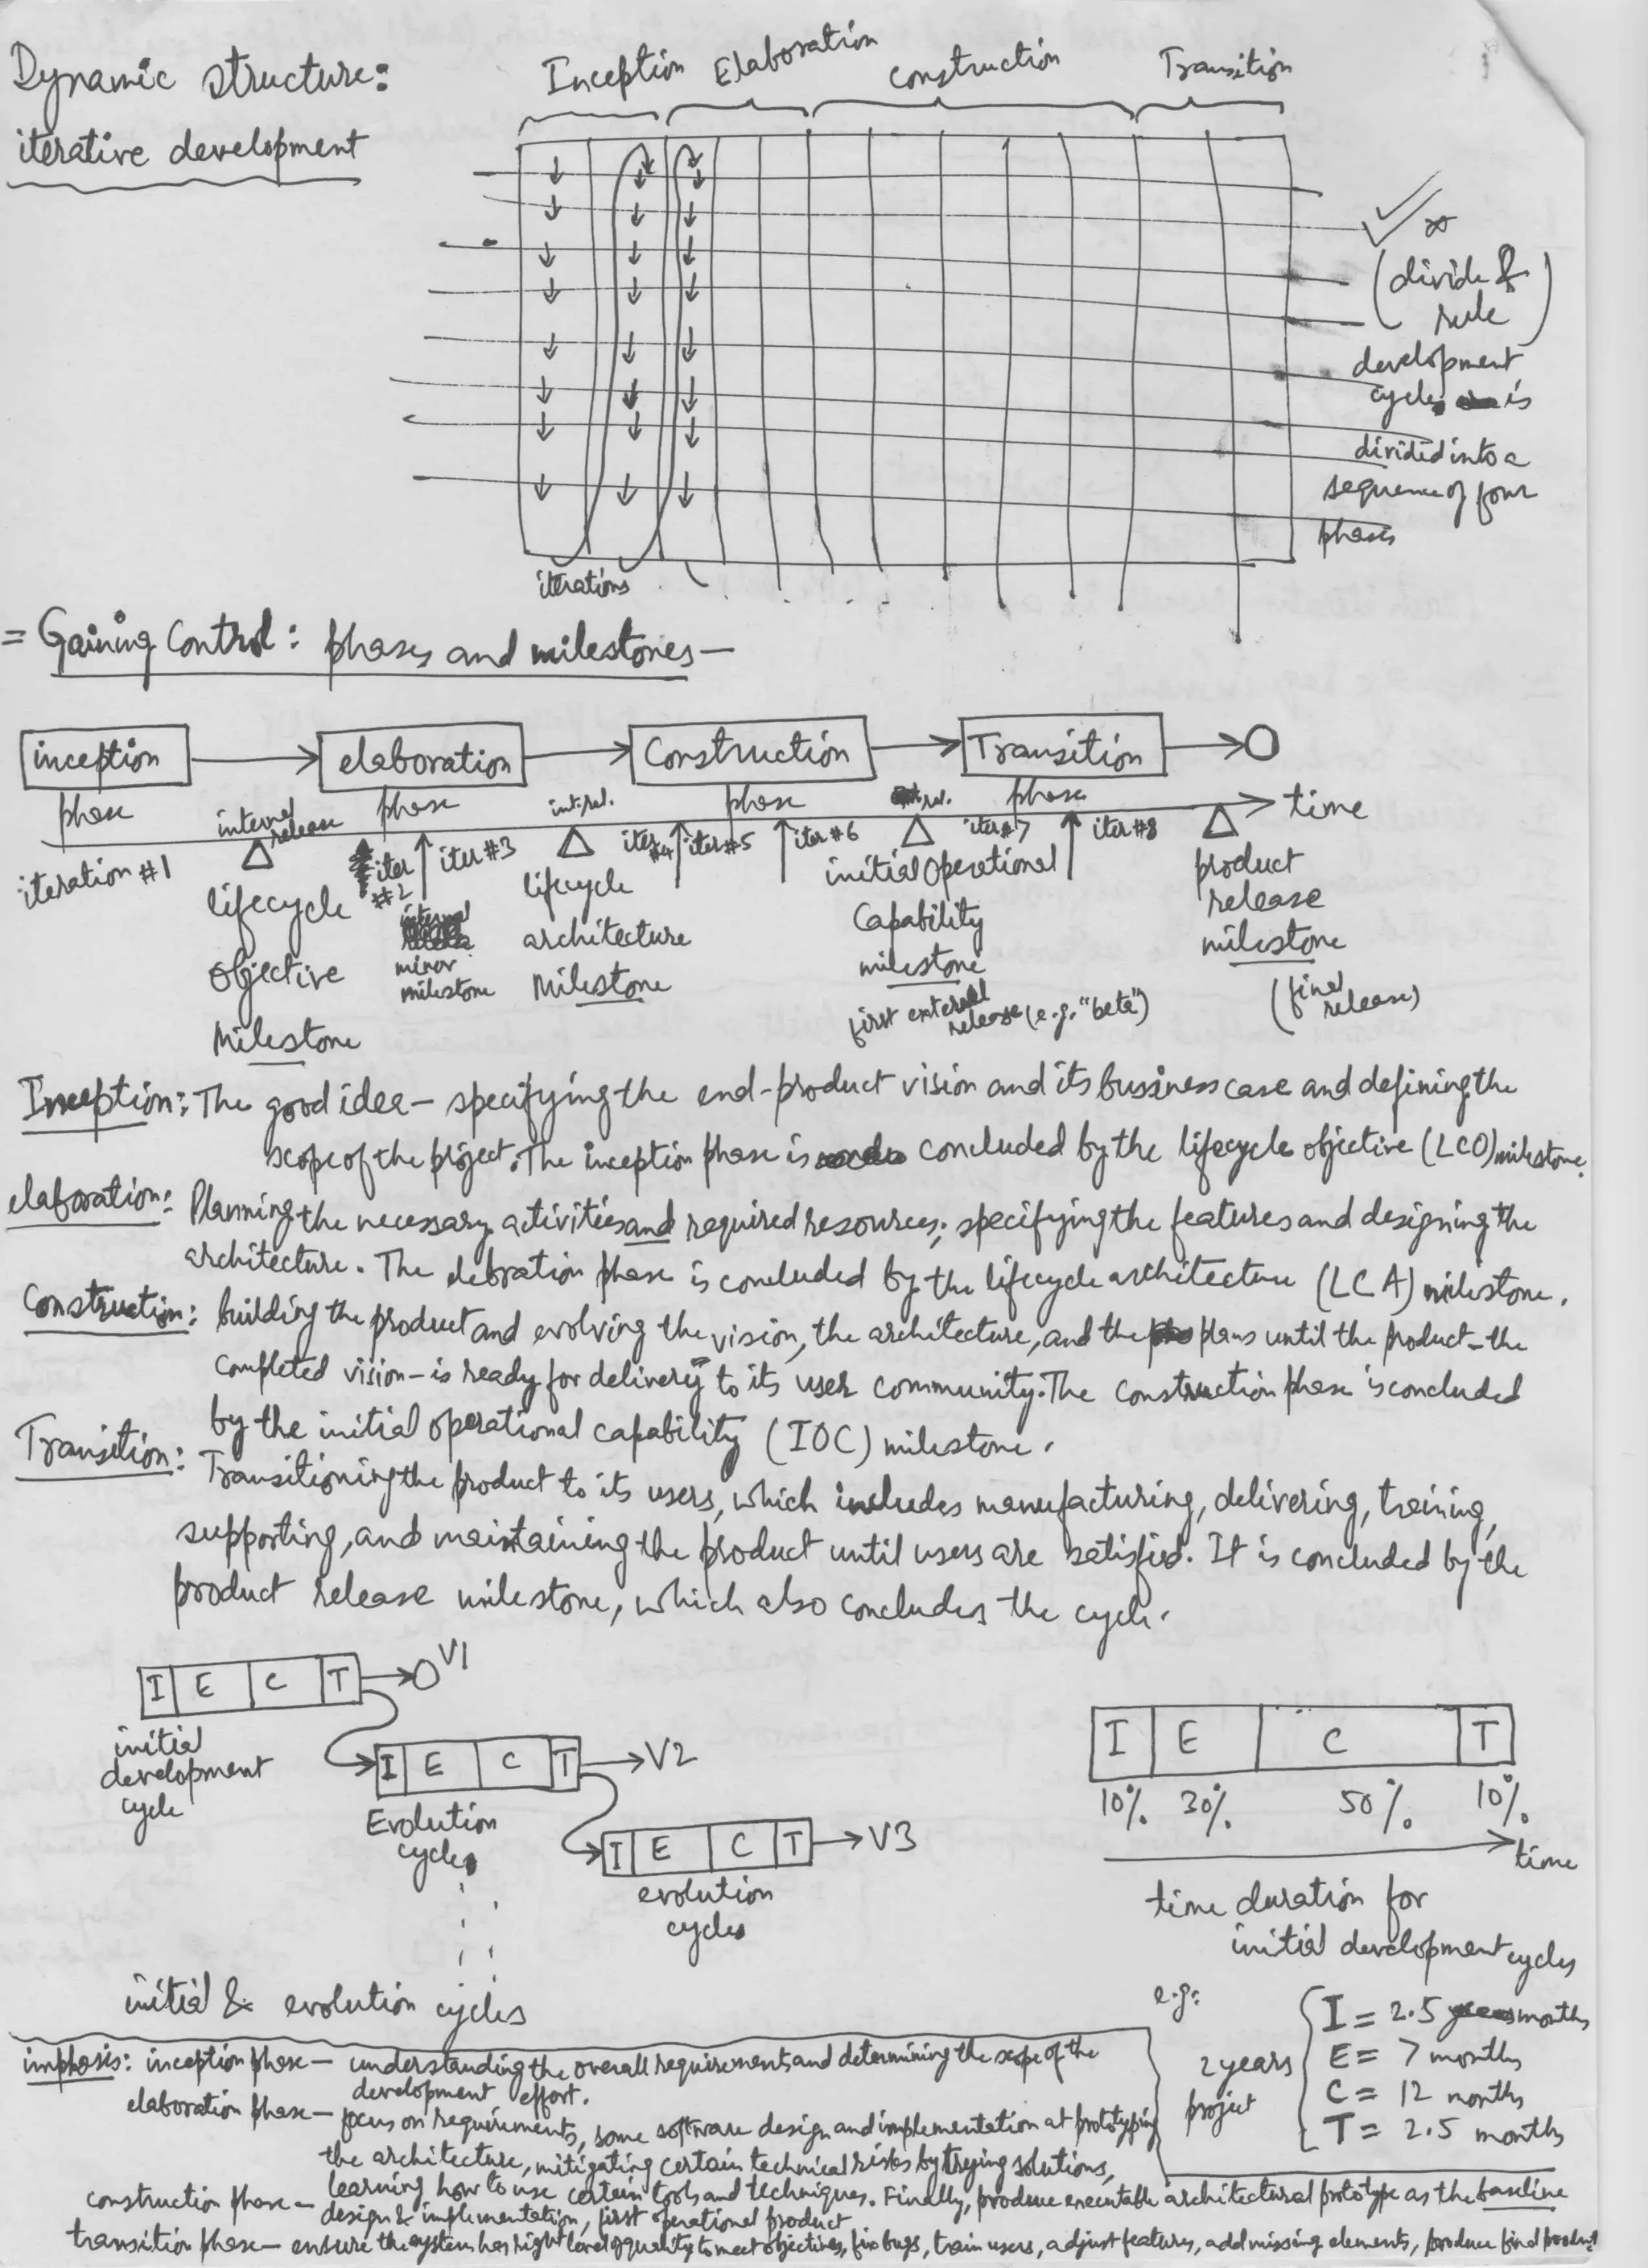 Dynamic structure:
iterative development
Inception Elaboration Construction Transition
(divide &
rule)
development
cycle is
divided into a
sequence of four
phases
iterations
= Gaining Control: phases and milestones—
inception elaboration Construction Transition
phase phase phase phase
time
internal release int.rel. rel.
iteration #1 iter #2 iter #3 iter #4 iter #5 iter #6 iter #7 iter #8
lifecycle
objective
Milestone
minor
milestone
lifecycle
architecture
Milestone
initial Operational
Capability
milestone
first external
release (e.g. "beta")
product
release
milestone
(final
release)
Inception: The good idea — specifying the end-product vision and its bussiness case and defining the
scope of the project. The inception phase is concluded by the lifecycle objective (LCO) milestone.
elaboration: Planning the necessary activities and required resources; specifying the features and designing the
architecture. The elebration phase is concluded by the lifecycle architecture (LCA) milestone.
Construction: building the product and evolving the vision, the architecture, and the plans until the product – the
completed vision – is ready for delivery to its user community. The construction phase is concluded
by the initial operational capability (IOC) milestone.
Transition: Transitioning the product to its users, which includes manufacturing, delivering, training,
supporting, and maintaining the product until users are satisfied. It is concluded by the
product release milestone, which also concludes the cycle.
I E C T V1
initial
development
cycle
I E C T V2
Evolution
cycles
I E C T V3
evolution
cycles
initial & evolution cycles
I E C T
10% 30% 50% 10%
time
time duration for
initial development cycles
e.g:
2 years
project
I = 2.5 months
E = 7 months
C = 12 months
T = 2.5 months
imphasis: inception phase — understanding the overall requirements and determining the scope of the
development effort.
elaboration phase — focus on requirements, some software design and implementation at prototyping
the architecture, mitigating certain technical risks by trying solutions,
learning how to use certain tools and techniques. Finally, produce executable architectural prototype as the baseline
construction phase — design & implementation, first operational product
transition phase — ensure the system has right level of quality to meet objectives, fix bugs, train users, adjust features, add missing elements, produce final product